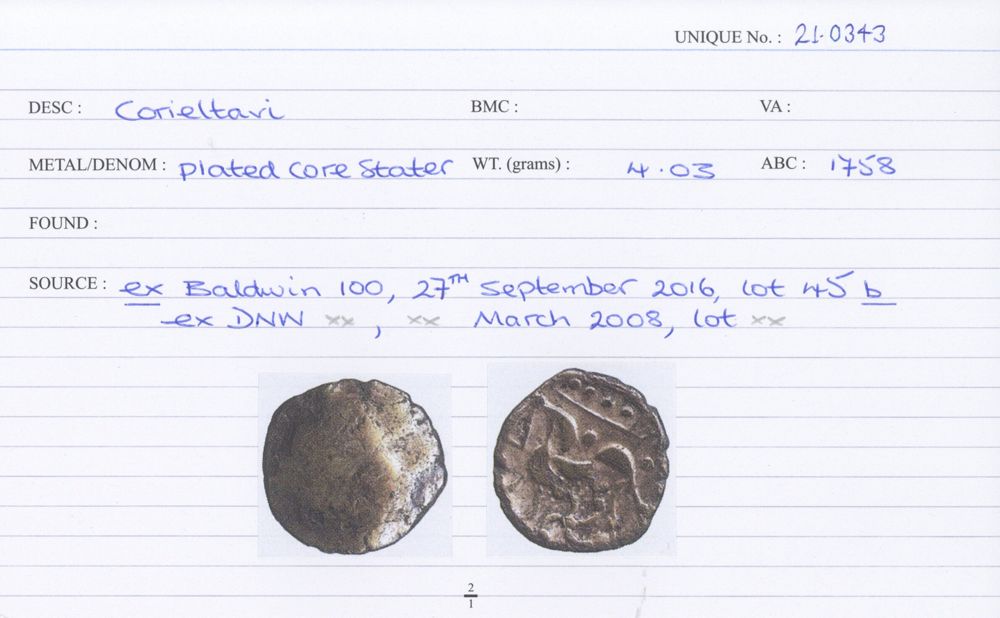 UNIQUE No. : 21.0343
DESC : Corieltavi BMC : VA :
METAL/DENOM : plated core stater WT. (grams) : 4.03 ABC : 1758
FOUND :
SOURCE : ex Baldwin 100, 27TH September 2016, lot 45 b
ex DNW xx, xx March 2008, lot xx
2
1